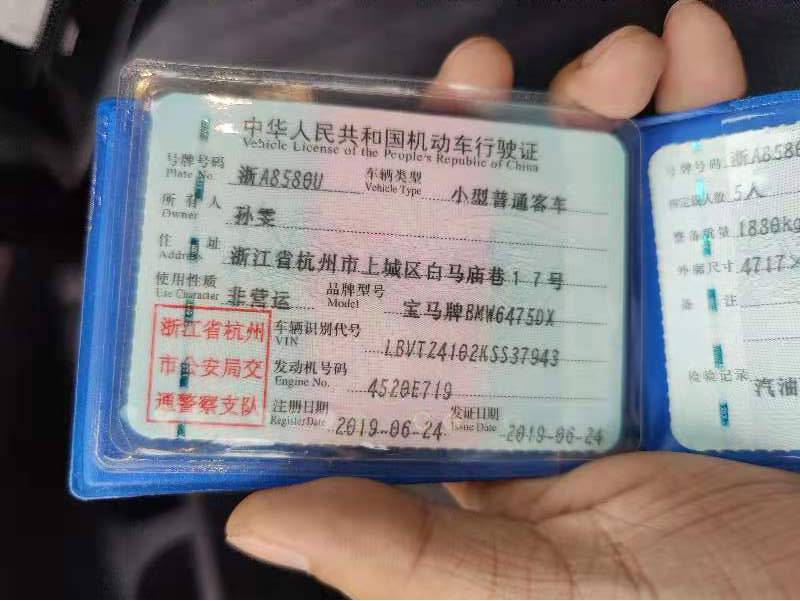 中华人民共和国机动车行驶证
Vehicle License of the People's Republic of China
号牌号码 浙A8580U 车辆类型 小型普通客车
Plate No. Vehicle Type
所有人 孙雯
Owner
住址 浙江省杭州市上城区白马庙巷17号
Address
使用性质 非营运 品牌型号 宝马牌BMW6475DX
Use Character Model
浙江省杭州
市公安局交
通警察支队
车辆识别代号 LBVTZ4102KSS37943
VIN
发动机号码 4520E719
Engine No.
注册日期 2019-06-24 发证日期 2019-06-24
Register Date Issue Date
号牌号码 浙A8580
核定载人数 5人
整备质量 1880kg
外廓尺寸 4717×
备注
检验记录
汽油